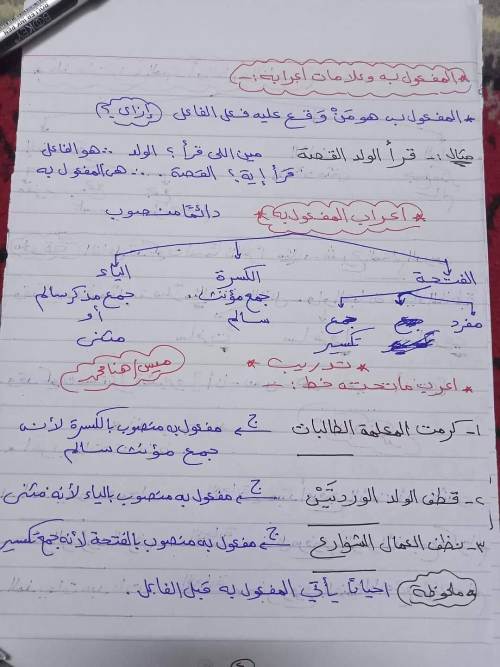 * المفعول به وعلامات اعرابه :-
* المفعول ب هو مَنْ وَقع عليه فعل الفاعل (إزاى ؟)
مثال :- قرأ الولد القصة مين اللى قرأ ؟ الولد ∴ هو الفاعل
قرأ إية ؟ القصة ∴ هى المفعول به
* اعراب المفعول به * دائمًا منصوب
الفتحة الكسرة الياء
مفرد جمع تكسير جمع مؤنث سالم جمع مذكر سالم أو مثنى
* تدريب * ميس / هنا محمد
* اعرب ماتحته خط :-
١- كرمت المعلمة الطالبات ج مفعول به منصوب بالكسرة لأنه
جمع مؤنث سالم
٢- قطف الولد الوردتَيْن ج مفعول به منصوب بالياء لأنه مثنى
٣- نظف العمال الشوارع ج مفعول به منصوب بالفتحة لأنه جمع تكسير
* ملحوظة احيانًا يأتي المفعول به قبل الفاعل .